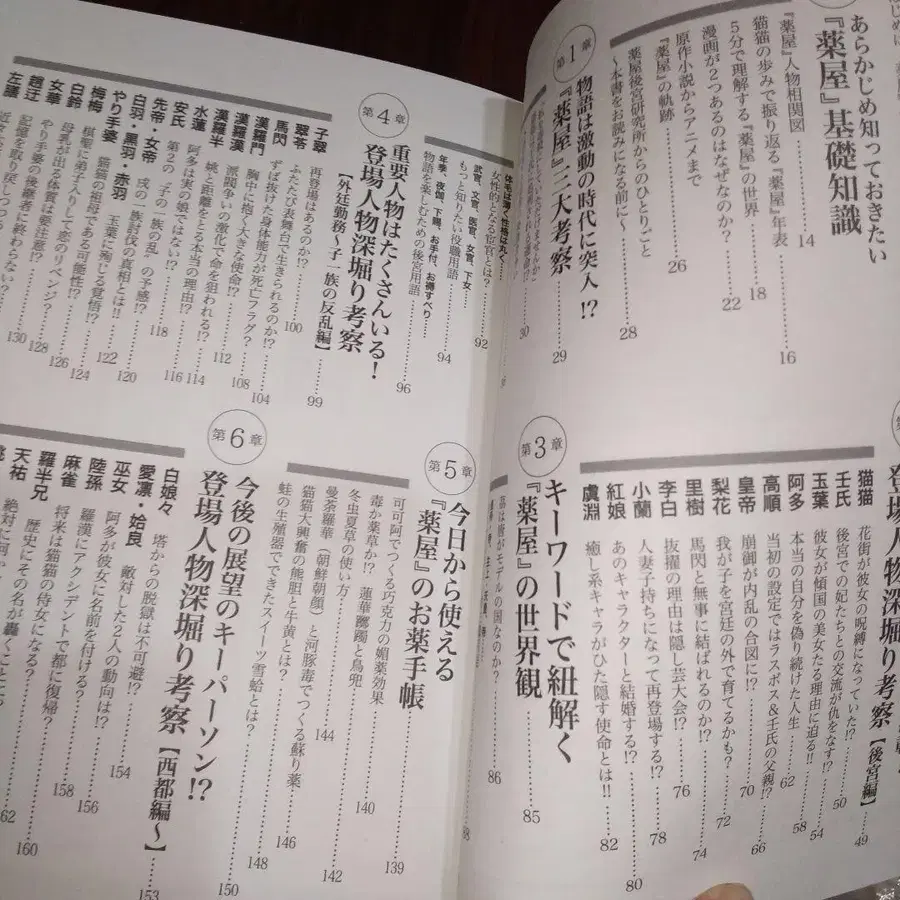 あらかじめ知っておきたい
『薬屋』基礎知識
『薬屋』人物相関図 14
猫猫の歩みで振り返る『薬屋』年表 16
5分で理解する『薬屋』の世界 18
漫画が2つあるのはなぜなのか? 22
原作小説からアニメまで
『薬屋』の軌跡 26
薬屋後宮研究所からのひとりごと
〜本書をお読みになる前に〜 28
第1章
物語は激動の時代に突入!?
『薬屋』三大考察 29
30
登場人物深堀り考察【後宮編】 49
猫猫 花街が彼女の呪縛になっていた!? 50
壬氏 後宮での妃たちとの交流が仇をなす? 54
玉葉 彼女が傾国の美女たる理由に迫る!! 58
阿多 本当の自分を偽り続けた人生 62
高順 当初の設定ではラスボス&壬氏の父親!? 66
皇帝 崩御が内乱の合図に!? 70
梨花 我が子を宮廷の外で育てるかも? 72
里樹 馬閃と無事に結ばれるのか!? 74
李白 抜擢の理由は隠し芸大会!? 76
小蘭 人妻子持ちになって再登場する!? 78
紅娘 あのキャラクターと結婚する!? 80
虞淵 癒し系キャラがひた隠す使命とは!! 82
第3章
キーワードで紐解く
『薬屋』の世界観 85
86
88
体毛は薄く性格は丸く……
女性的となる宦官とは?
武官、文官、医官、女官、下女
もっと知りたい役職用語 92
年季、夜伽、下賜、お手付、お褥すべり……
物語を楽しむための後宮用語 94
第4章
重要人物はたくさんいる!
登場人物深堀り考察 96
【外廷勤務〜子一族の反乱編】 99
子翠 再登場はあるのか!? 100
翠苓 ふたたび表舞台で生きられるのか!?
馬閃 ずば抜けた身体能力が死亡フラグ? 104
漢羅門 胸中に抱く大きな使命!? 108
漢羅漢 派閥争いの激化で命を狙われる!?
漢羅半 姚と距離をとる本当の理由!? 112
水蓮 阿多は実の娘ではない!? 114
安氏 第2の“子の一族の乱”の予感!? 116
先帝・女帝 118
白羽・黒羽・赤羽 戌の一族討伐の真相とは!! 120
やり手婆 玉葉に殉じる覚悟!? 122
梅梅 猫猫の祖母である可能性!? 124
白鈴 棋聖に弟子入りして恋のリベンジ? 126
女華 母乳が出る体質は要注意!? 128
趙迂 やり手婆の後継者に終わらない? 130
左膳 記憶を取り戻しつつある!?
第5章
今日から使える
『薬屋』のお薬手帳
可可阿でつくる巧克力の媚薬効果 139
毒か薬草か!? 蓮華躑躅と鳥兜 140
冬虫夏草の使い方 142
曼荼羅華(朝鮮朝顔)と河豚毒でつくる蘇り薬 144
猫猫大興奮の熊胆と牛黄とは? 146
蛙の生殖器でできたスイーツ雪蛤とは? 148
第6章
今後の展望のキーパーソン!?
登場人物深堀り考察【西都編〜】 150
白娘々 塔からの脱獄は不可避!? 153
愛凛・姶良 敵対した2人の動向は!? 154
巫女 阿多が彼女に名前を付ける? 156
陸孫 羅漢にアクシデントで都に復帰? 158
麻雀 将来は猫猫の侍女になる? 160
羅半兄 歴史にその名が轟くことに? 162
天祐